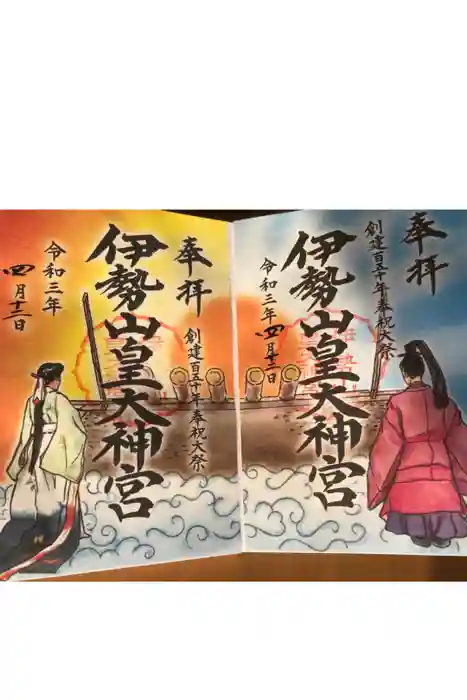 奉拝
創建百五十年奉祝大祭
伊勢山皇大神宮
令和三年四月十二日
奉拝
創建百五十年奉祝大祭
伊勢山皇大神宮
令和三年
四月十二日